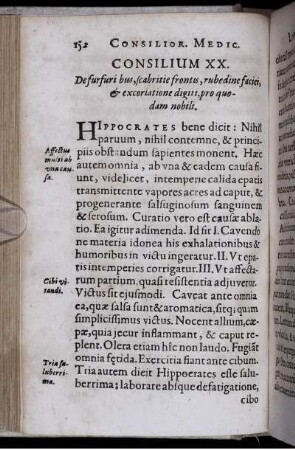 152 CONSILIOR. MEDIC.
CONSILIUM XX.
De furfuri bus, scabritie frontis, rubedine faciei,
& excoriatione digiti, pro quo-
dam nobili.
HIPPOCRATES bene dicit: Nihil
paruum, nihil contemne, & princi-
piis obstandum sapientes monent. Hæc
Affectus
multi ab
vna cau-
sa.
autem omnia, ab vna & eadem causa fi-
unt, videlicet, intempene calida epatis
transmittente vapores acres ad caput, &
progenerante salsuginosum sanguinem
& serosum. Curatio vero est causæ abla-
tio. Ea igitur adimenda. Id fir I. Cavendo
ne materia idonea his exhalationibus &
humoribus in victu ingeratur. II. Vt epa-
tis intemperies corrigatur. III. Vt affecta-
rum partium, quasi resistentia adjuvetur.
Cibi vi-
tandi.
Victus sit ejusmodi. Caveat ante omnia
ea, quæ salsa sunt & aromatica, sitq; quàm
simplicissimus victus. Nocent allium, cæ-
pæ, quia jecur inflammant, & caput re-
plent. Olera etiam hîc non laudo. Fugiāt
omnia fętida. Exercitia fiant ante cibum.
Tria sa-
luberri-
ma.
Tria autem dicit Hippocrates esse salu-
berrima; laborare absque defatigatione,
cibo